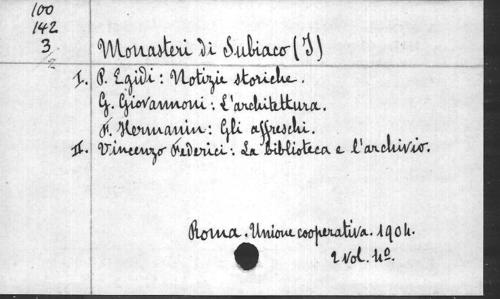 100
142
3
Monasteri di Subiaco (I)
I. P. Egidi: Notizie storiche.
G. Giovannoni: L'architettura.
F. Hermanin: Gli affreschi.
II. Vincenzo Federici: La biblioteca e l'archivio.
Roma. Unione cooperativa. 1904.
2 vol. 4º.